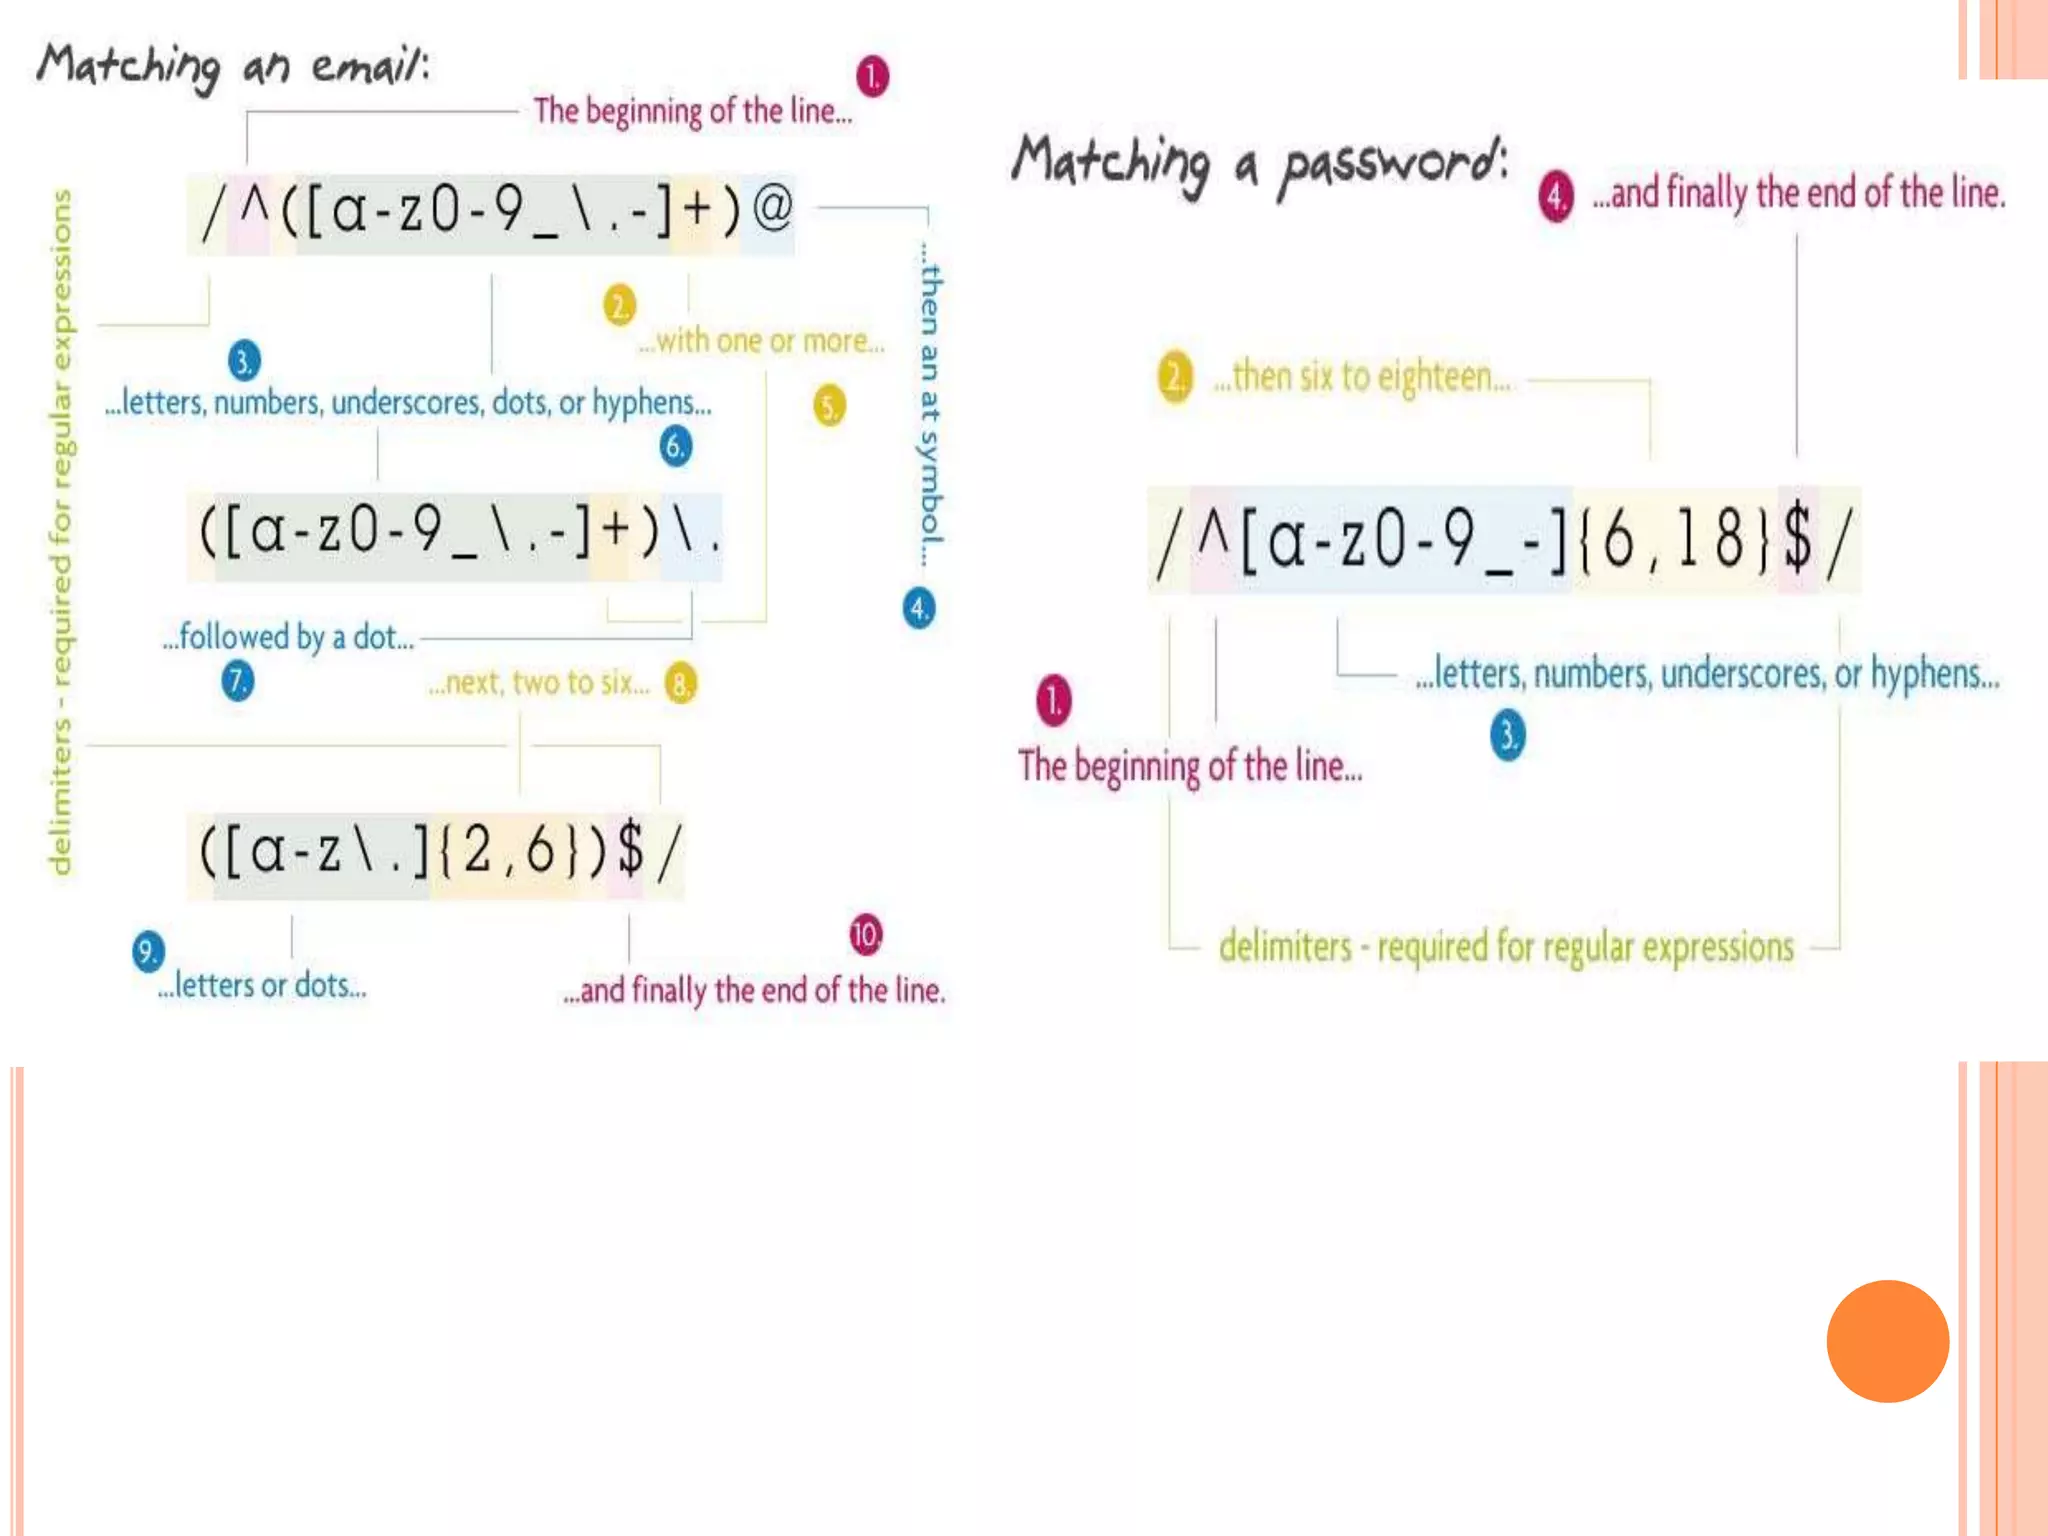 Matching an email:
The beginning of the line... 1.
/^([a-z0-9_\.-]+)@
2.
...with one or more...
3.
...letters, numbers, underscores, dots, or hyphens...
...then an at symbol...
4.
5.
6.
([a-z0-9_\.-]+)\.
...followed by a dot...
7.
...next, two to six... 8.
([a-z\.]{2,6})$/
9.
...letters or dots...
10.
...and finally the end of the line.
delimiters - required for regular expressions
Matching a password:
4. ...and finally the end of the line.
2. ...then six to eighteen...
/^[a-z0-9_-]{6,18}$/
...letters, numbers, underscores, or hyphens...
3.
1.
The beginning of the line...
delimiters - required for regular expressions